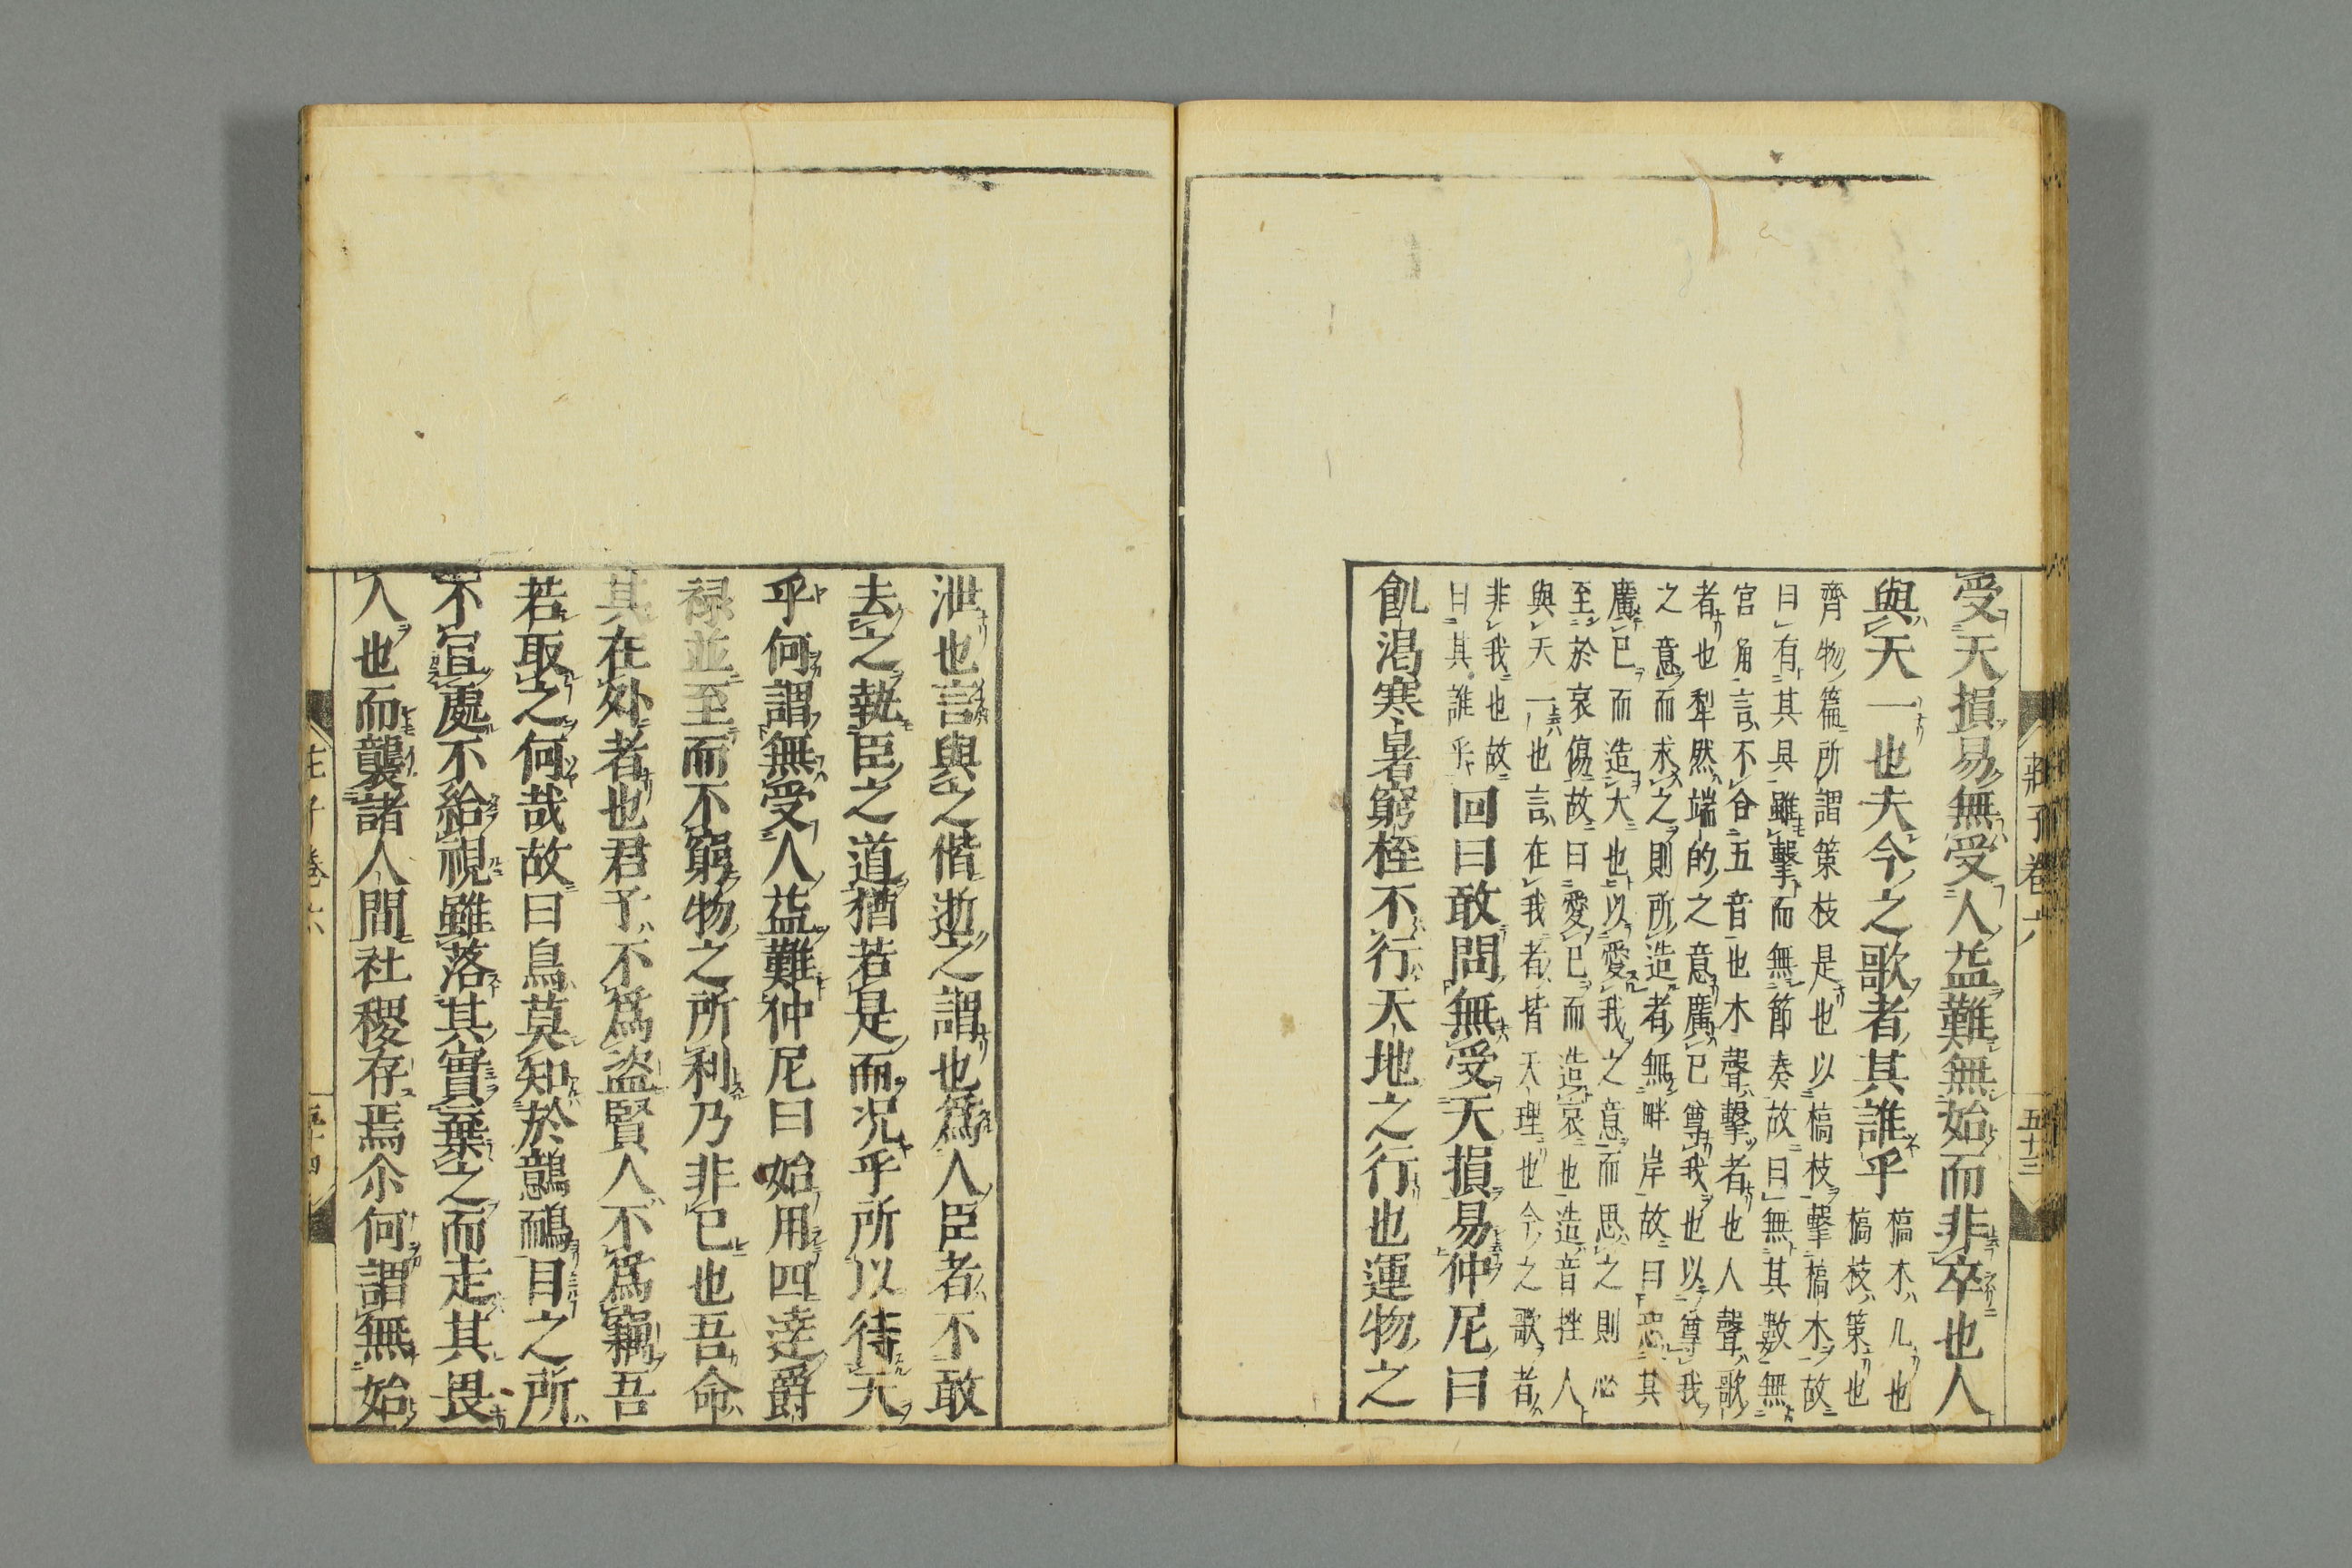 莊子卷六　五十三
受天損易無受人益難無始而非卒也人
與天一也夫今之歌者其誰乎
槁木几也
槁枝策也
齊物篇所謂策枝是也以槁枝擊槁木故
曰有其具雖擊而無節奏故曰無其數無
宮角言不合五音也木聲擊者也人聲歌
者也犁然端的之意廣已尊我也以尊我
之意而求之則所造者無畔岸故曰恐其
廣已而造大也以愛我之意而思之則必
至於哀傷故曰愛已而造哀也造音挫人
與天一也言在我者皆天理也今之歌者
非我也故
曰其誰乎
回曰敢問無受天損易仲尼曰
飢渴寒暑窮桎不行天地之行也運物之
泄也言與之偕逝之謂也爲人臣者不敢
去之執臣之道猶若是而况乎所以待天
乎何謂無受人益難仲尼曰始用四達爵
禄並至而不窮物之所利乃非已也吾命
其在外者也君子不爲盜賢人不爲竊吾
若取之何哉故曰鳥莫知於鷾鴯目之所
不宜處不給視雖落其實棄之而走其畏
人也而襲諸人間社稷存焉尒何謂無始
莊子卷六　五十四